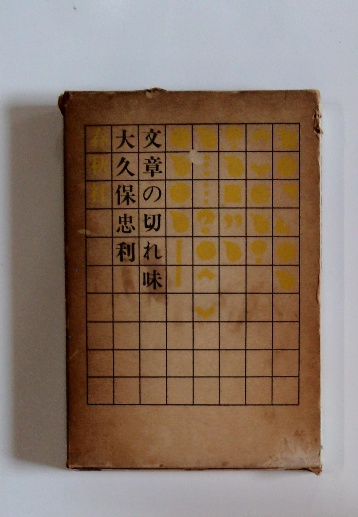 文章の切れ味
大久保忠利